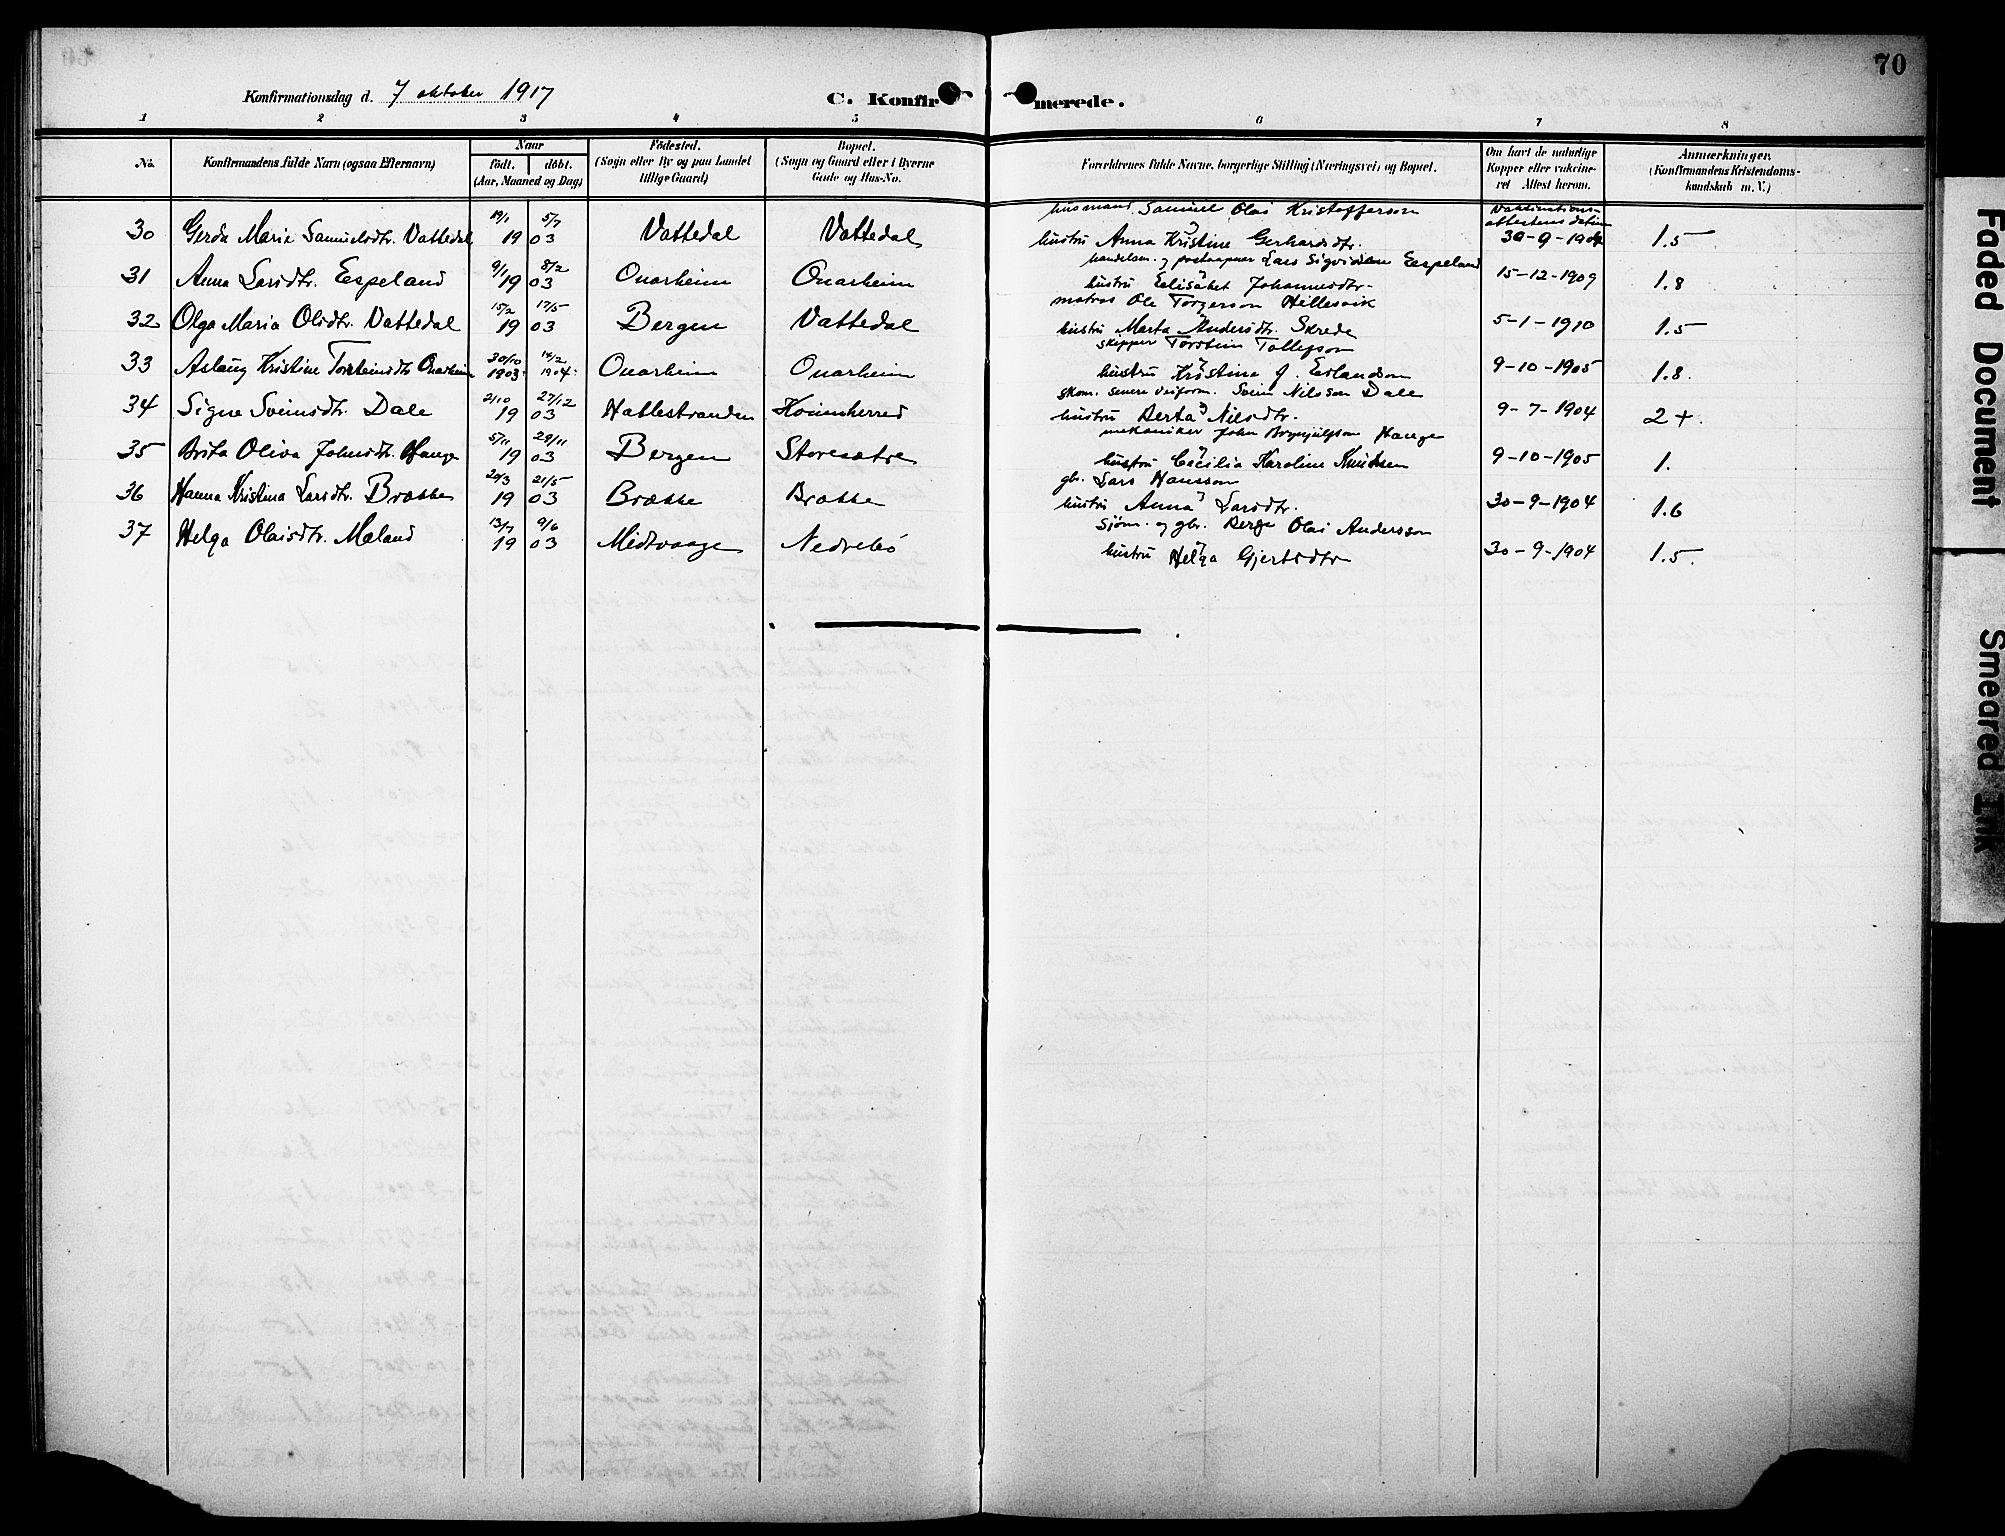 70
Konfirmationsdag d. 7 oktober 1917
C. Konfirmerede.
1 2 3 4 5 6 7 8
No. Konfirmandens fulde Navn (ogsaa Efternavn) Naar födt. döbt. (Aar, Maaned og Dag) Födested. (Sogn eller By og paa Landet tillige Gaard) Bopæl. (Sogn og Gaard eller i Byerne Gade og Hus-No. Forældrenes fulde Navne, borgerlige Stilling (Næringsvei) og Bopæl. Om havt de naturlige Kopper eller vaccineret Attest herom. Anmærkninger. (Konfirmandens Kristendomskundskab m. V.)
husmand Samuel Olai Kristofferson Vaksinationsattestens datum
30 Gerda Marie Samuelsdtr. Vattedal 19/1 1903 5/7 Vattedal Vattedal hustru Anna Kristine Gerhardsdtr. 30-9-1904 1.5
handelsm. og postaapner Lars Sigvidsen Eespeland
31 Anna Larsdtr. Eespeland 9/1 1903 8/2 Onarheim Onarheim hustru Eelisabet Johannesdtr. 15-12-1909 1.8
matros Ole Torgerson Hillesvik
32 Olga Maria Olsdtr. Vattedal 15/2 1903 17/5 Bergen Vattedal hustru Marta Andersdtr. Skrede 5-1-1910 1.5
skipper Torstein Tollefson
33 Aslaug Kristine Torsteinsdtr Onarheim 30/10 1903 14/2 1904 Onarheim Onarheim hustru Kristine J. Erlandson 9-10-1905 1.8.
skom. senere Svein Nilsson Dale
34 Signe Sveinsdtr. Dale 2/10 1903 27/12 Hattestranden Kvinnherred hustru Berta Nilsdtr. 9-7-1904 2+.
mekaniker John Brynjulfson Hauge
35 Brita Oliva Johnsdtr. Hauge 5/11 1903 29/11 Bergen Storesætre hustru Cecilia Karoline Knutsen 9-10-1905 1.
gbr. Lars Hansson
36 Hanna Kristina Larsdtr. Brække 29/3 1903 21/5 Brække Brække hustru Anna Larsdtr. 30-9-1904 1.6
sjöm. og gbr. Berge Olai Andersson
37 Helga Olaisdtr. Meland 13/7 1903 9/6 Midtvaage Nedrebö hustru Helga Gjertsdtr 30-9-1904 1.5.
Faded Document
Smeared Ink